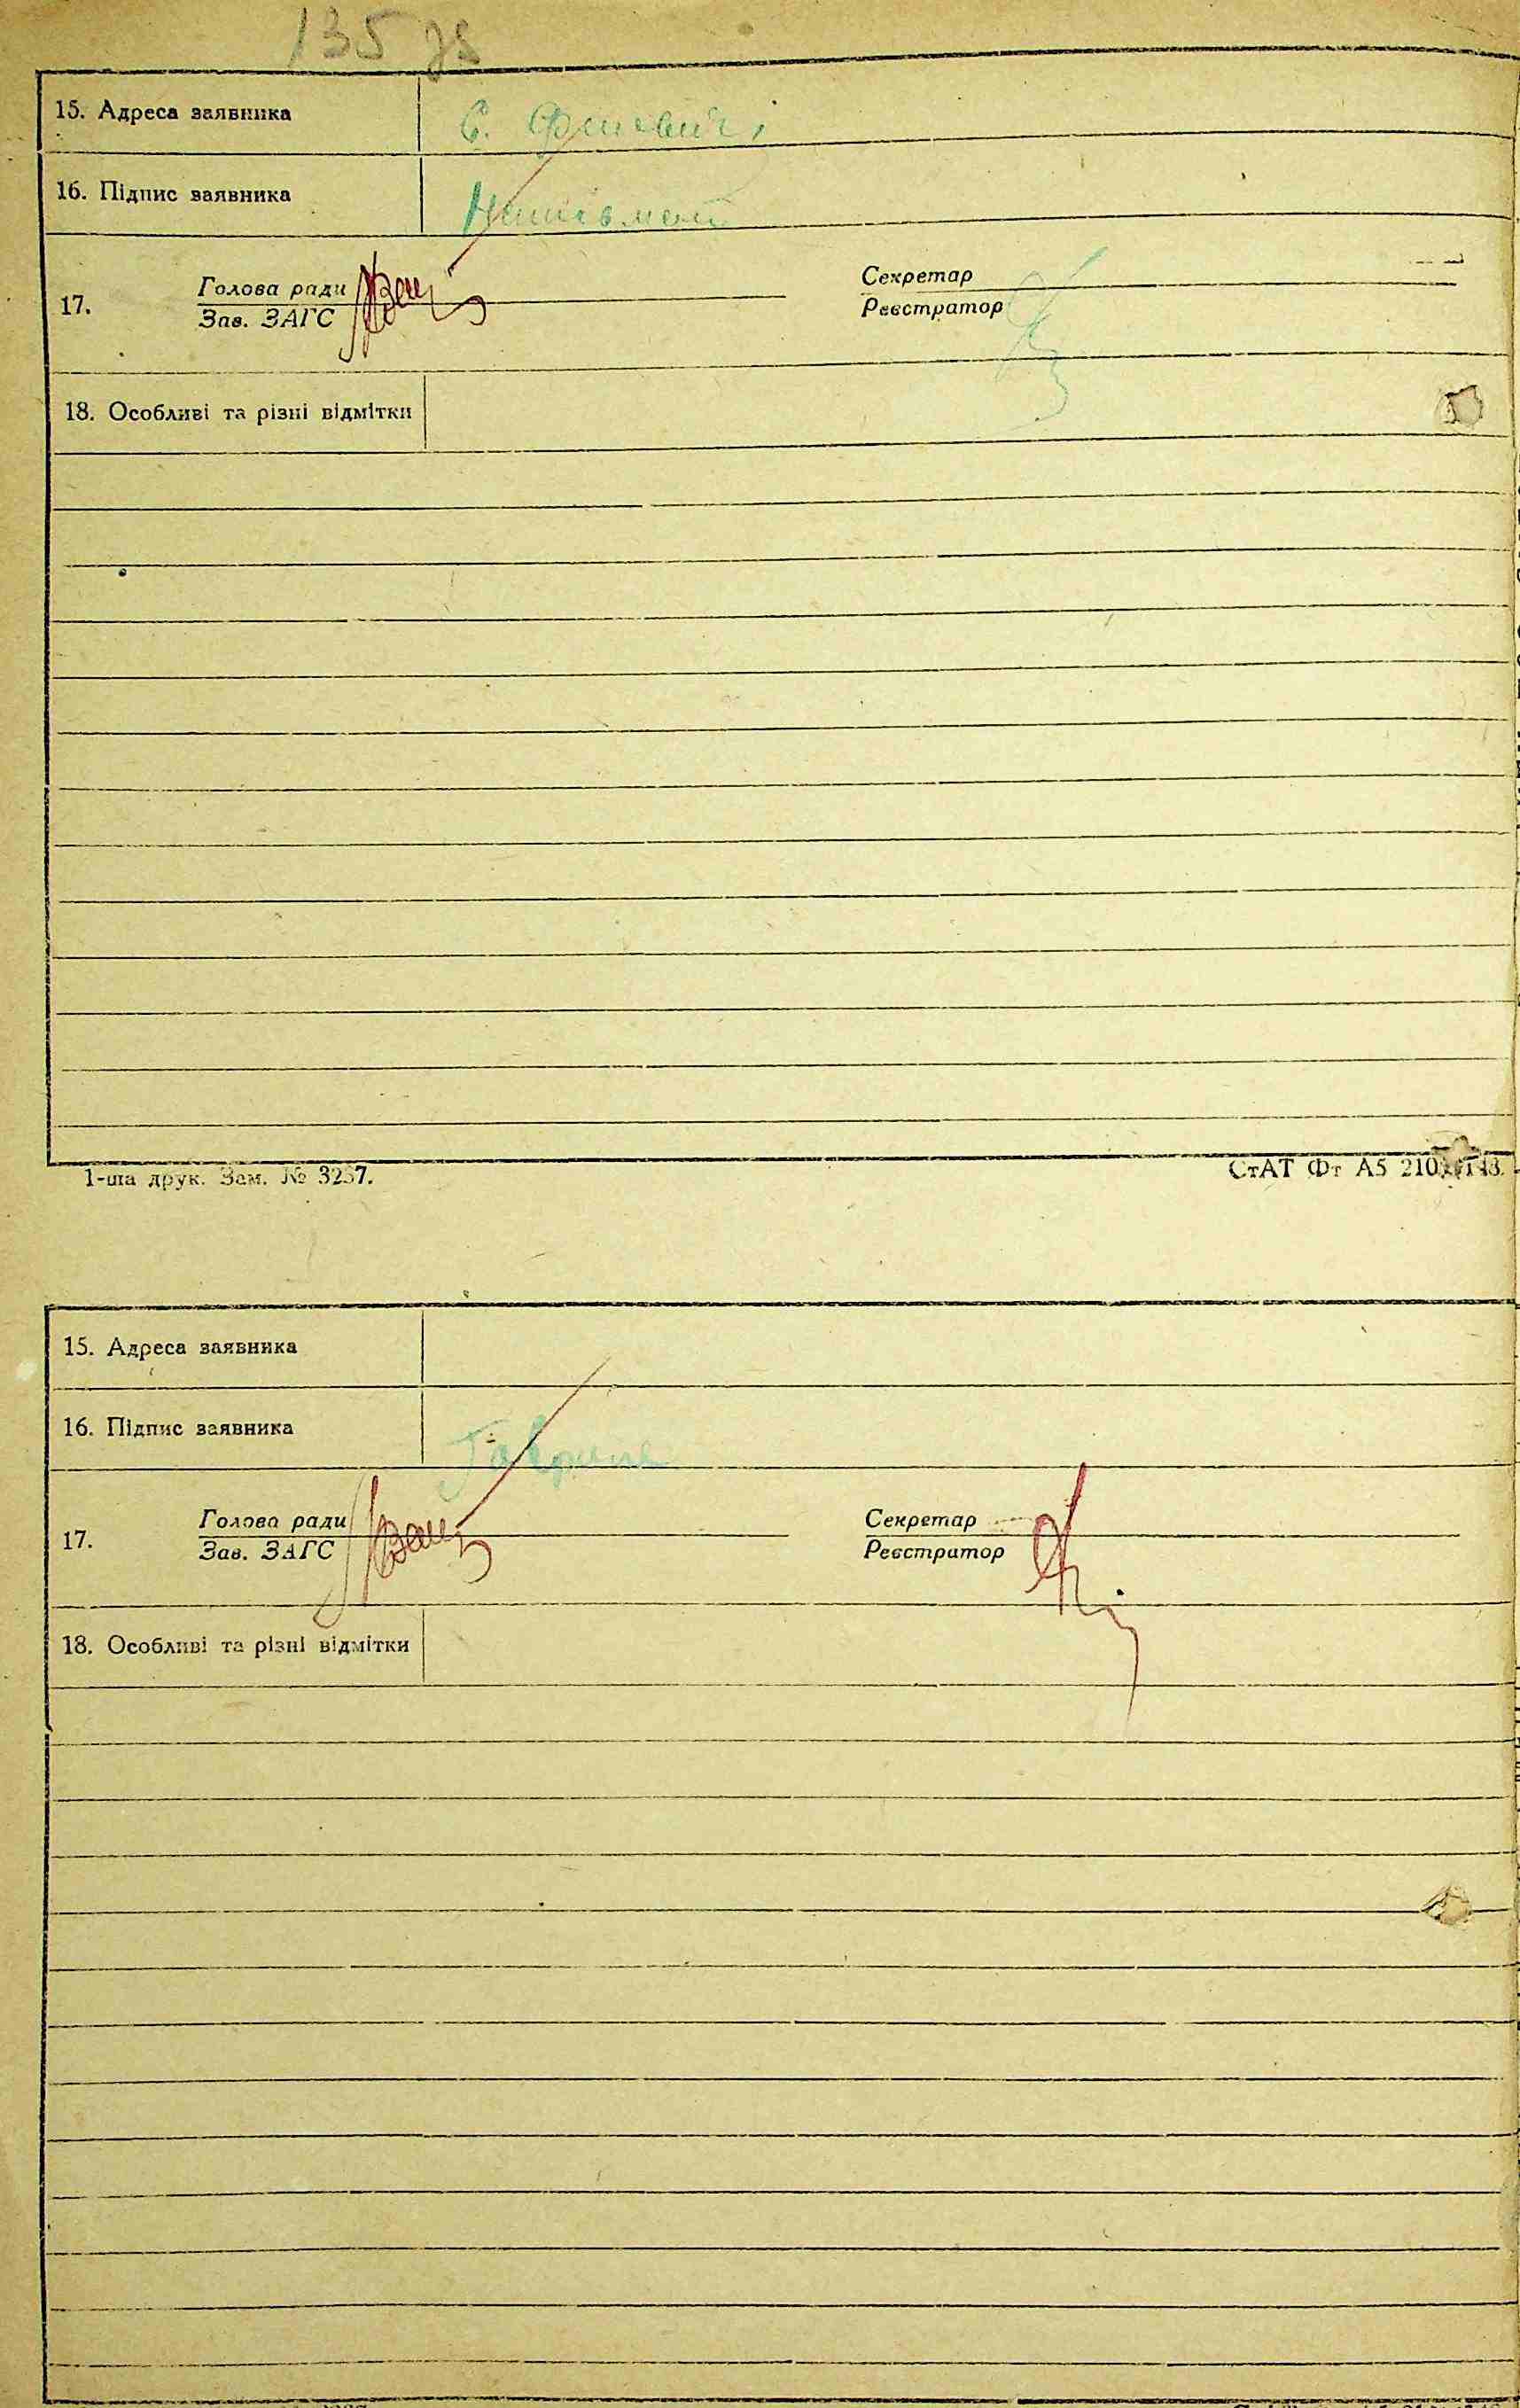 135 зв
15. Адреса заявника
с.
16. Підпис заявника
17.
Голова ради
Зав. ЗАГС
Секретар
Реєстратор
18. Особливі та різні відмітки
1-ша друк. Зам. № 3257.
СтАТ Фт А5 210
15. Адреса заявника
16. Підпис заявника
17.
Голова ради
Зав. ЗАГС
Секретар
Реєстратор
18. Особливі та різні відмітки